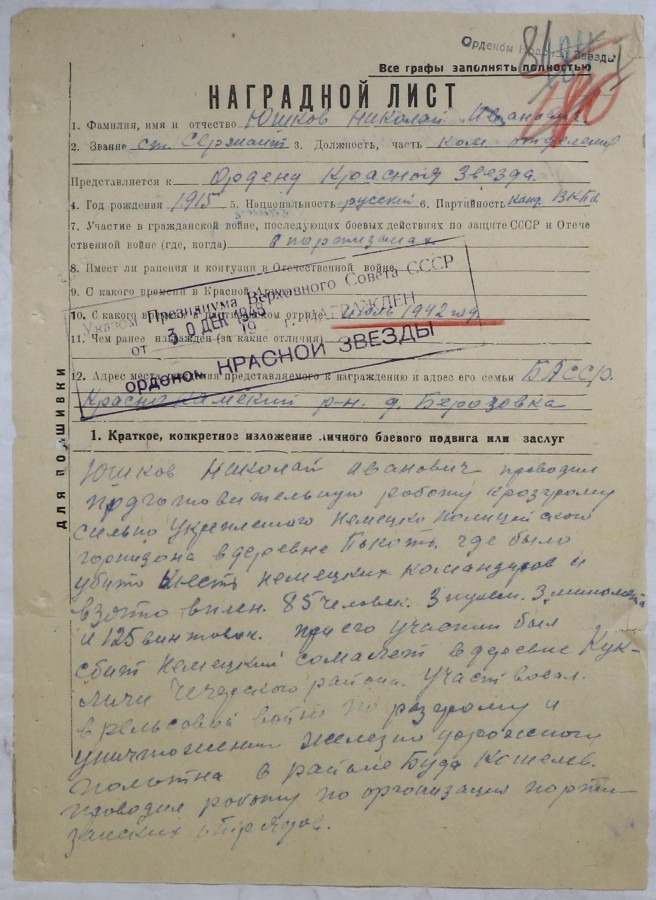 Орденом Красной Звезды
Все графы заполнять полностью
НАГРАДНОЙ ЛИСТ
1. Фамилия, имя и отчество Юшков Николай Иванович
2. Звание ст. Сержант 3. Должность, часть ком. отделения
Представляется к Ордену Красная Звезда.
4. Год рождения 1915 5. Национальность русский 6. Партийность канд. ВКПб
7. Участие в гражданской войне, последующих боевых действиях по защите СССР и Отече
ственной войне (где, когда) в партизанах
8. Имеет ли ранения и контузии в Отечественной войне
9. С какого времени в Красной
10. С какого 1942 год
11. Чем ранее награжден (за какие отличия)
Указом Президиума Верховного Совета СССР
от 30 ДЕК 1948 г. НАГРАЖДЕН
орденом КРАСНОЙ ЗВЕЗДЫ
12. Адрес места представляемого к награждению и адрес его семьи БАССР.
Краснокамский р-н. д. Березовка
ДЛЯ ПОДШИВКИ
1. Краткое, конкретное изложение личного боевого подвига или заслуг
Юшков Николай Иванович проводил
подготовительную работу к розгрому
сильно укрепленого Немецко полицейской
горнизона в деревне где было
убито шесть немецких командиров и
взято в плен. 85 человек. 3 пулем. 3 миномета
и 125 винтовок. при его участии был
сбит Немецкий самалет в деревне Кук-
личи Чечерского района. Участвовал.
в рельсовой войне по розгрому и
уничтожении железно дорожного
полотна в районе Буда Кошелев.
проводил работу по организации парти-
занских отрядов.